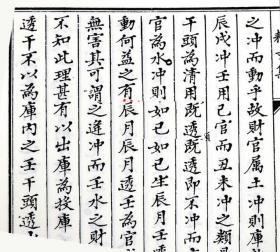 之冲而動乎故財官属土冲則庫
辰戌冲壬用己官而丑未冲之類是
干頭為清用既透既透即不冲而
官為水冲則如己如己生辰月壬
動何益之有辰月辰月透壬為官
無害其可謂之逢冲而壬水之財
不知此理甚有以出庫為投庫
透干不以為庫内之壬干頭透